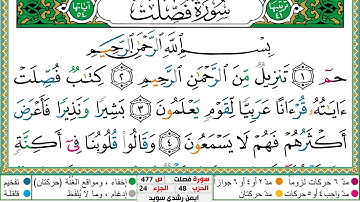 ترتيبها ٤١ سورة فصلت آياتها ٥٤
بِسْمِ ٱللَّهِ ٱلرَّحْمَٰنِ ٱلرَّحِيمِ
حمٓ ١ تَنزِيلٌ مِّنَ ٱلرَّحْمَٰنِ ٱلرَّحِيمِ ٢ كِتَٰبٌ فُصِّلَتْ
ءَايَٰتُهُۥ قُرْءَانًا عَرَبِيًّا لِّقَوْمٍ يَعْلَمُونَ ٣ بَشِيرًا وَنَذِيرًا فَأَعْرَضَ
أَكْثَرُهُمْ فَهُمْ لَا يَسْمَعُونَ ٤ وَقَالُوا۟ قُلُوبُنَا فِىٓ أَكِنَّةٍ
مدّ ٦ حركات لزوما مدّ ٢ أو ٤ أو ٦ جوازا سورة فصلت ص 477 إخفاء، ومواقع الغنّة (حركتان) تفخيم
مدّ واجب ٤ أو ٥ حركات مدّ حركتان الحزب 48 الجزء 24 إدغام، وما لا يُلفَظ قلقلة
ايمن رشدي سويد